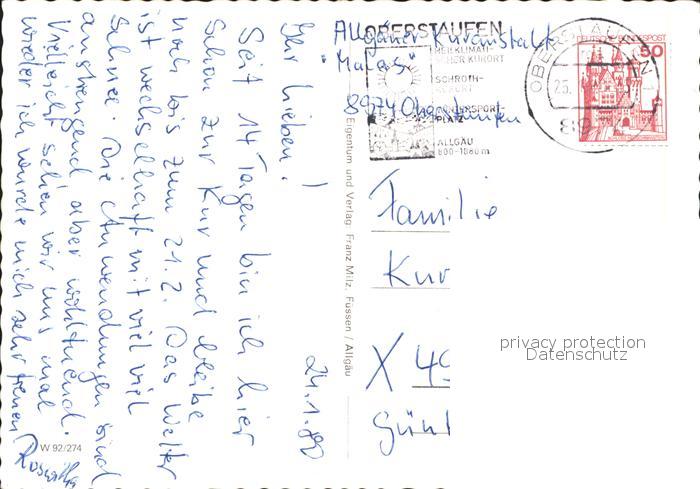 24.1.80
Ihr Lieben!
Seit 14 Tagen bin ich hier
schon zur Kur und bleibe
noch bis zum 21.2. Das Wetter
ist wechselhaft mit viel viel
Schnee. Die Anwendungen sind
anstrengend aber wohltuend.
Vielleicht sehen wir uns mal
wieder ich würde mich sehr freuen
Roswitha
W 92/274
Eigentum und Verlag Franz Milz, Füssen / Allgäu
Allgäuer Kuranstalt
8974 Oberstaufen
OBERSTAUFEN
HEILKLIMATISCHER KURORT
SCHROTH-
KURORT
WINTERSPORT-
PLATZ
ALLGÄU
800-1860 m
DEUTSCHE BUNDESPOST
50
Familie
Kur
X 49
privacy protection
Datenschutz